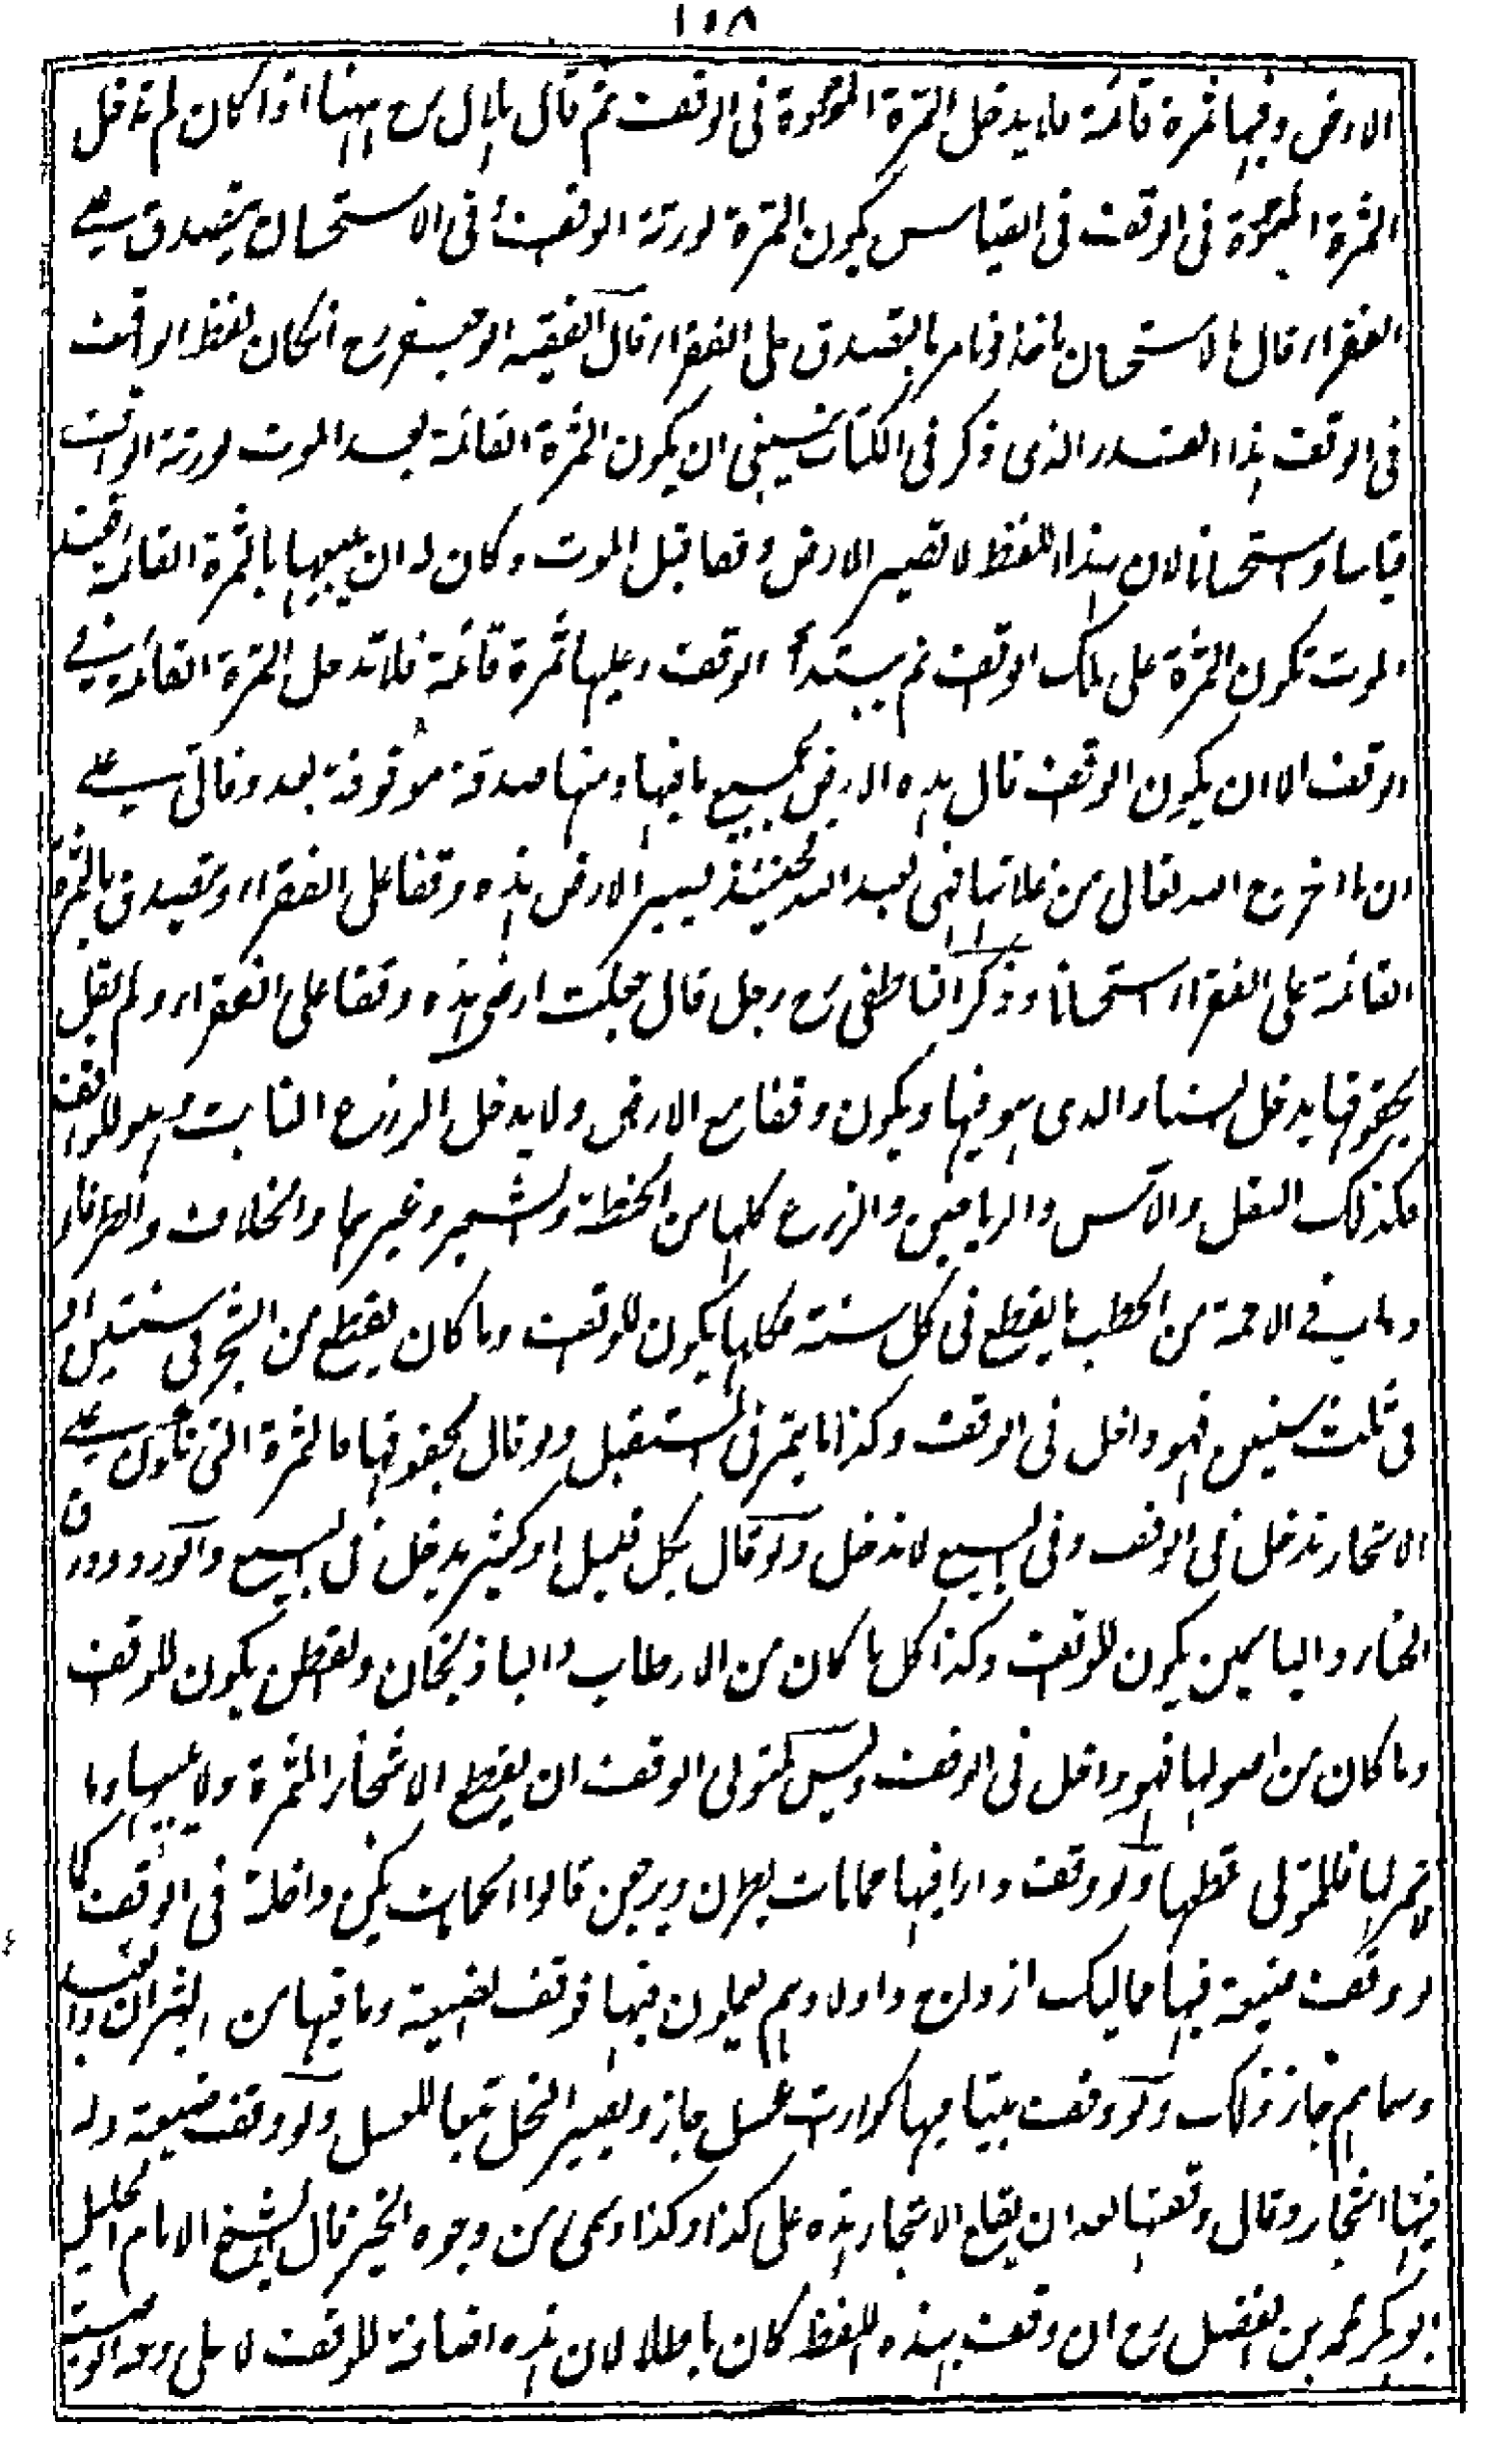 ١٥٨
الارض وفيها ثمرة قائمة فلا يدخل الثمرة الموجودة فى الوقف ثم قال هلال رح ههنا اذا كان لم تدخل
الثمرة الموجودة فى الوقف فى القياس يكون الثمرة لورثة الواقف وفى الاستحسان يتصدق على
الفقراء قال بالاستحسان ناخذ ونامر بالتصدق على الفقراء قال الفقيه ابو جعفر رح انكان لفظ الواقف
فى الوقف هذا القدر الذى ذكر فى الكتاب ينبغى ان يكون الثمرة القائمة بعد الموت لورثة الواقف
قياسا واستحسانا لان بهذا اللفظ لا تصير الارض وقفا قبل الموت وكان له ان يبيعها بالثمرة القائمة فعند
الموت تكون الثمرة على ملك الواقف ثم يبتدأ الوقف وعليها ثمرة قائمة فلا تدخل الثمرة القائمة فى
الوقف الا ان يكون الواقف قال هذه الارض بجميع ما فيها ومنها صدقة موقوفة بعد وفاتى على
ان ما اخرج الله تعالى من غلاتها فهى لعبد الله فحينئذ يصير الارض هذه وقفا على الفقراء ويتصدق بالثمرة
القائمة على الفقراء استحسانا وذكر الناطفى رح رجل قال جعلت ارضى هذه وقفا على الفقراء ولم يقل
بحقوقها يدخل البناء الذى هو فيها ويكون وقفا مع الارض ولا يدخل الزرع النابت وهو للواقف
وكذلك البقل والآس والرياحين والزرع كلها من الحنطة والشعير وغيرهما والخلاف والطرفاء
وما فى الاجمة من الحطب ما يقطع فى كل سنة فكلها يكون للواقف وما كان يقطع من الشجر فى سنتين او
فى ثلث سنين فهو داخل فى الوقف وكذا ما يثمر فى المستقبل ولو قال بحقوقها فالثمرة التى تكون على
الاشجار تدخل فى الوقف وفى البيع لا تدخل ولو قال بكل قليل او كثير يدخل فى البيع والورد وورق
الحناء والياسمين يكون للواقف وكذا كل ما كان من الارطاب والباذنجان والقطن يكون للواقف
وما كان من اصولها فهو داخل فى الوقف وليس لمتولى الوقف ان يقطع الاشجار المثمرة ولا يبيعها وما
لا ثمر لها فللمتولى قطعها ولو وقف دارا فيها حمامات يطرن ويرجعن قالوا الحمامات يكن داخلة فى الوقف كما
لو وقف ضيعة فيها مماليك ازواج واولادهم يعملون فيها فوقف الضيعة وما فيها من الثيران والعبيد
وسماهم جاز ذلك ولو وقف بيتا فيها كوارات عسل جاز ويصير النحل تبعا للعسل ولو وقف ضيعة وله
فيها اشجار وقال وقفتها بعد ان يقلع الاشجار هذه على كذا وكذا وسمى من وجوه الخير قال الشيخ الامام الجليل
ابو بكر محمد بن الفضل رح ان وقف بهذه اللفظ كان باطلا لان هذه اضافة للوقف لا على وجه الوصية